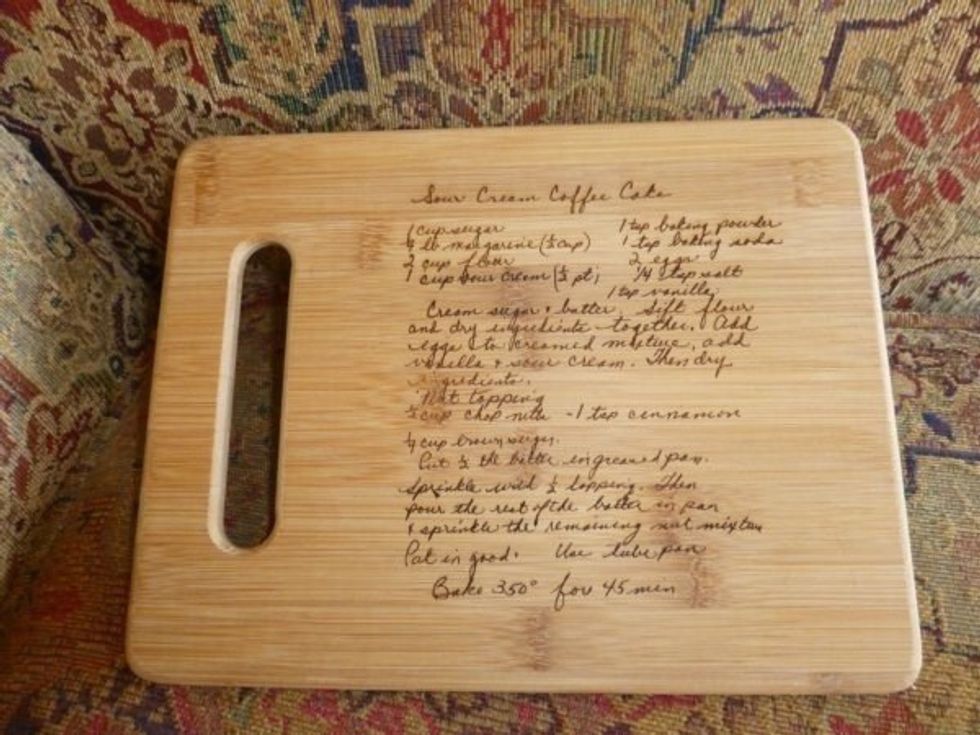 Sour Cream Coffee Cake
1 cup sugar
¼ lb margarine (½ cup)
2 cup flour
1 cup sour cream (½ pt)
1 tsp baking powder
1 tsp baking soda
2 eggs
¼ tsp salt
1 tsp vanilla
Cream sugar + butter, Sift flour
and dry ingredients together. Add
eggs to creamed mixture, add
vanilla + sour cream. Then dry
ingredients.
Nut topping
½ cup chop nuts - 1 tsp cinnamon
¼ cup brown sugar.
Put ½ the batter in greased pan.
Sprinkle with ½ topping. Then
pour the rest of the batter in pan
+ sprinkle the remaining nut mixture
Pat in good. Use tube pan
Bake 350° for 45 min